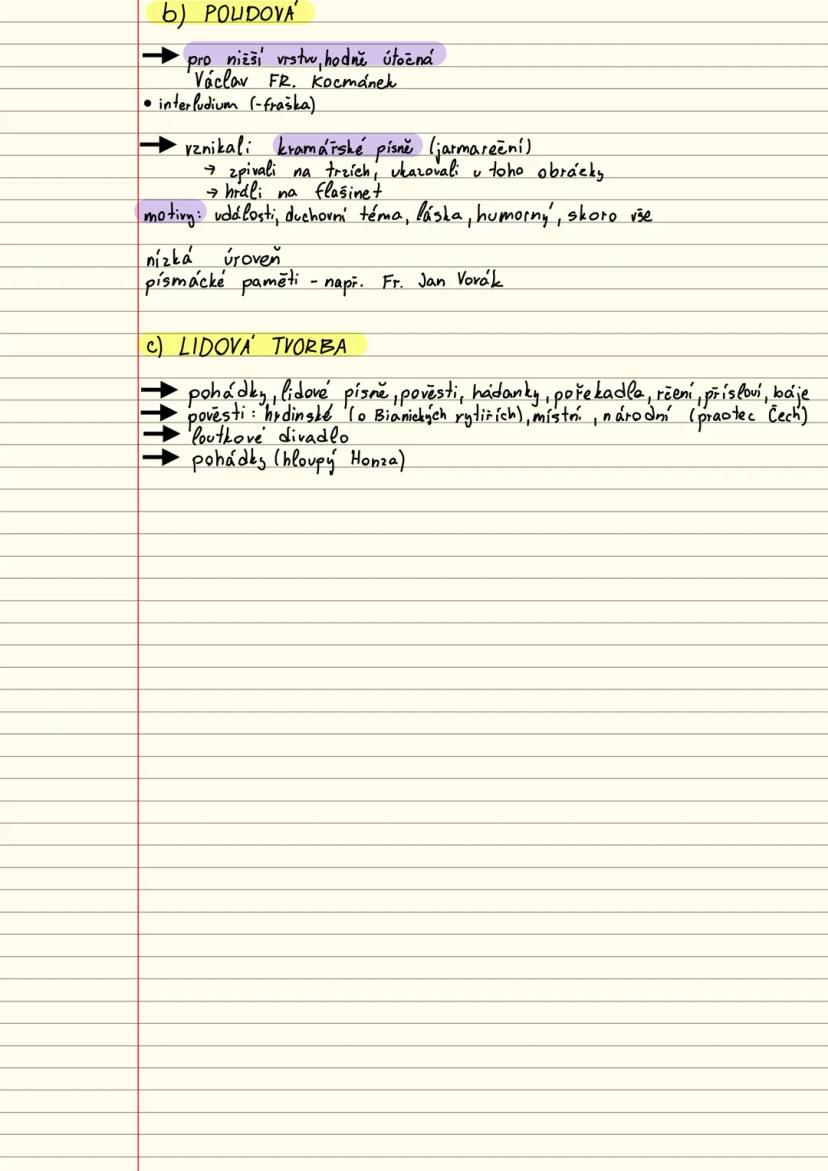 b) POLIDOVÁ
→ pro nižší vrstvu, hodně útočná
Václav FR. Kocmánek
• interludium (-fraška)
→ vznikali kramářské písně (jarmareční)
→ zpívali na trzích, ukazovali u toho obrázky
→ hráli na flašinet
motivy: události, duchovní téma, láska, humorný, skoro vše
nízká úroveň
písmácké paměti - např. Fr. Jan Vovák
c) LIDOVÁ TVORBA
→ pohádky, lidové písně, pověsti, hádanky, pořekadla, rčení, přísloví, báje
→ pověsti: hrdinské (o Blanických rytířích), místní, národní (praotec Čech)
→ loutkové divadlo
→ pohádky (hloupý Honza)